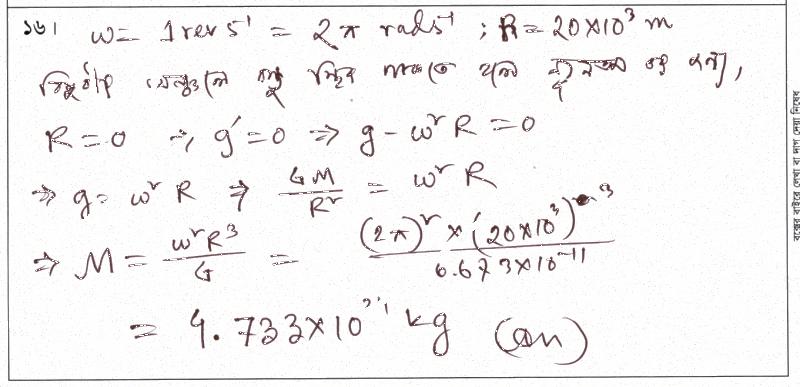 ১৬। ω = 1 rev s⁻¹ = 2π rad s⁻¹ ; R = 20×10³ m
বস্তু স্থির থাকতে হলে ন্যূনতম ভর জন্য,
R = 0 ⇒ g' = 0 ⇒ g - ω² R = 0
⇒ g = ω² R ⇒ GM/R² = ω² R
⇒ M = ω²R³/G = (2π)² × (20×10³)³ / 6.673×10⁻¹¹
= 4.733×10²¹ kg (Ans)
বক্সের বাইরে লেখা বা দাগ দেয়া নিষেধ